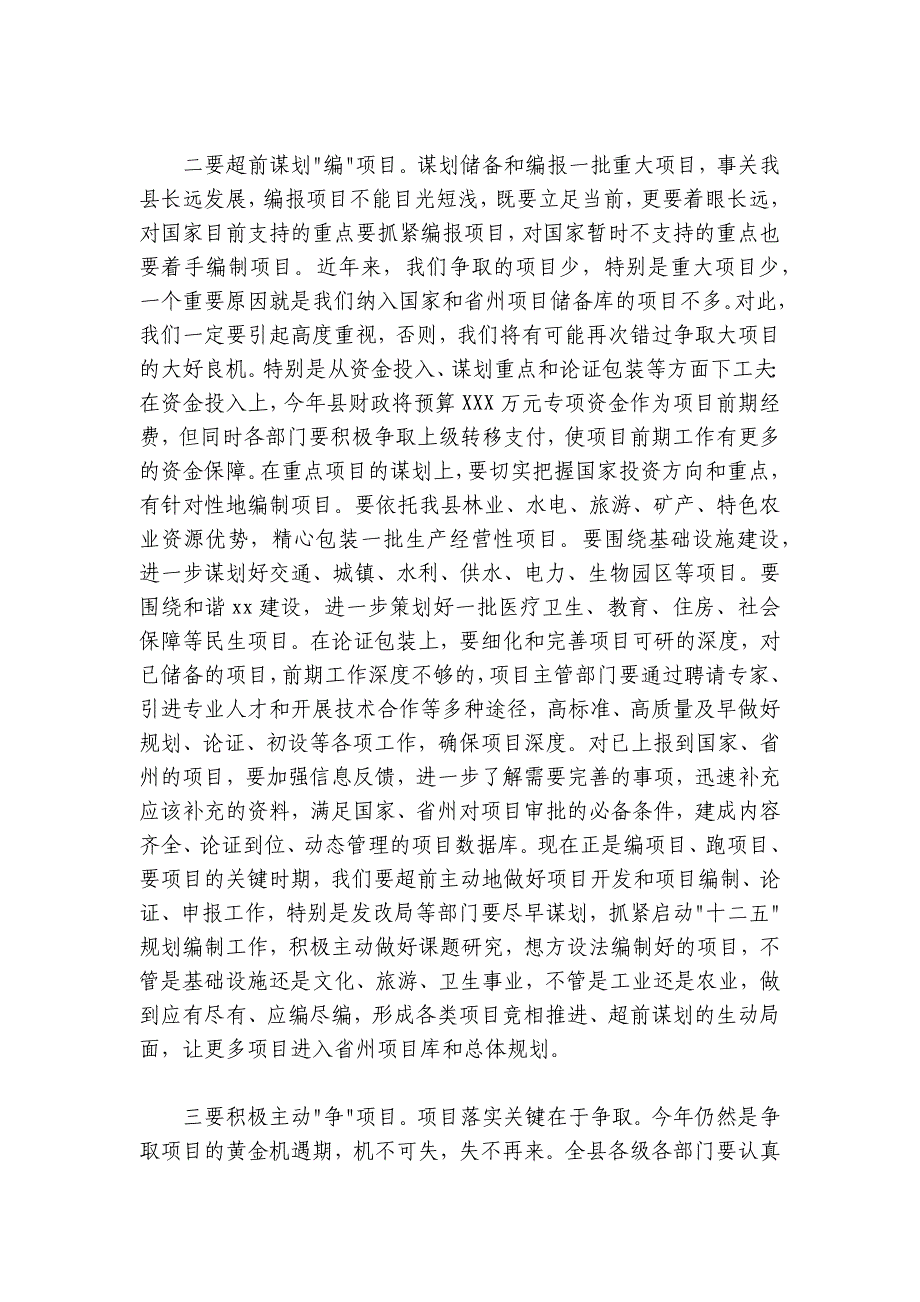 二要超前谋划"编"项目。谋划储备和编报一批重大项目，事关我
县长远发展，编报项目不能目光短浅，既要立足当前，更要着眼长远，
对国家目前支持的重点要抓紧编报项目，对国家暂时不支持的重点也
要着手编制项目。近年来，我们争取的项目少，特别是重大项目少，
一个重要原因就是我们纳入国家和省州项目储备库的项目不多。对此，
我们一定要引起高度重视，否则，我们将有可能再次错过争取大项目
的大好良机。特别是从资金投入、谋划重点和论证包装等方面下工夫：
在资金投入上，今年县财政将预算 XXX 万元专项资金作为项目前期经
费，但同时各部门要积极争取上级转移支付，使项目前期工作有更多
的资金保障。在重点项目的谋划上，要切实把握国家投资方向和重点，
有针对性地编制项目。要依托我县林业、水电、旅游、矿产、特色农
业资源优势，精心包装一批生产经营性项目。要围绕基础设施建设，
进一步谋划好交通、城镇、水利、供水、电力、生物园区等项目。要
围绕和谐 xx 建设，进一步策划好一批医疗卫生、教育、住房、社会
保障等民生项目。在论证包装上，要细化和完善项目可研的深度，对
已储备的项目，前期工作深度不够的，项目主管部门要通过聘请专家、
引进专业人才和开展技术合作等多种途径，高标准、高质量及早做好
规划、论证、初设等各项工作，确保项目深度。对已上报到国家、省
州的项目，要加强信息反馈，进一步了解需要完善的事项，迅速补充
应该补充的资料，满足国家、省州对项目审批的必备条件，建成内容
齐全、论证到位、动态管理的项目数据库。现在正是编项目、跑项目、
要项目的关键时期，我们要超前主动地做好项目开发和项目编制、论
证、申报工作，特别是发改局等部门要尽早谋划，抓紧启动"十二五"
规划编制工作，积极主动做好课题研究，想方设法编制好的项目，不
管是基础设施还是文化、旅游、卫生事业，不管是工业还是农业，做
到应有尽有、应编尽编，形成各类项目竞相推进、超前谋划的生动局
面，让更多项目进入省州项目库和总体规划。
三要积极主动"争"项目。项目落实关键在于争取。今年仍然是争
取项目的黄金机遇期，机不可失，失不再来。全县各级各部门要认真